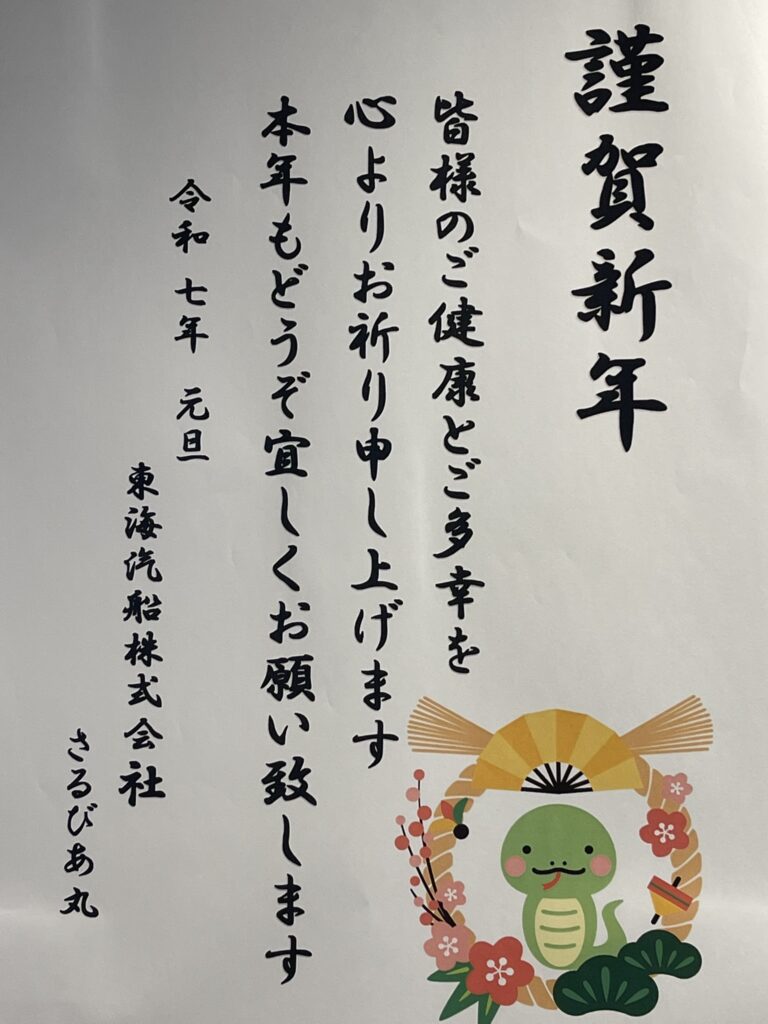 謹賀新年
皆様のご健康とご多幸を
心よりお祈り申し上げます
本年もどうぞ宜しくお願い致します
令和 七年 元旦
東海汽船株式会社
さるびあ丸